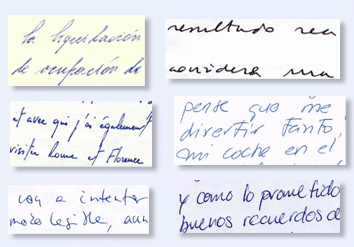 la liquidación
de ocupación de
resultado sea
considera una
et avec qui j'ai également
visiter Rome et Florence
pense que me
divertir tanto,
mi coche en el
voy a intentar
más legible, aun
y como lo prometido
buenos recuerdos de